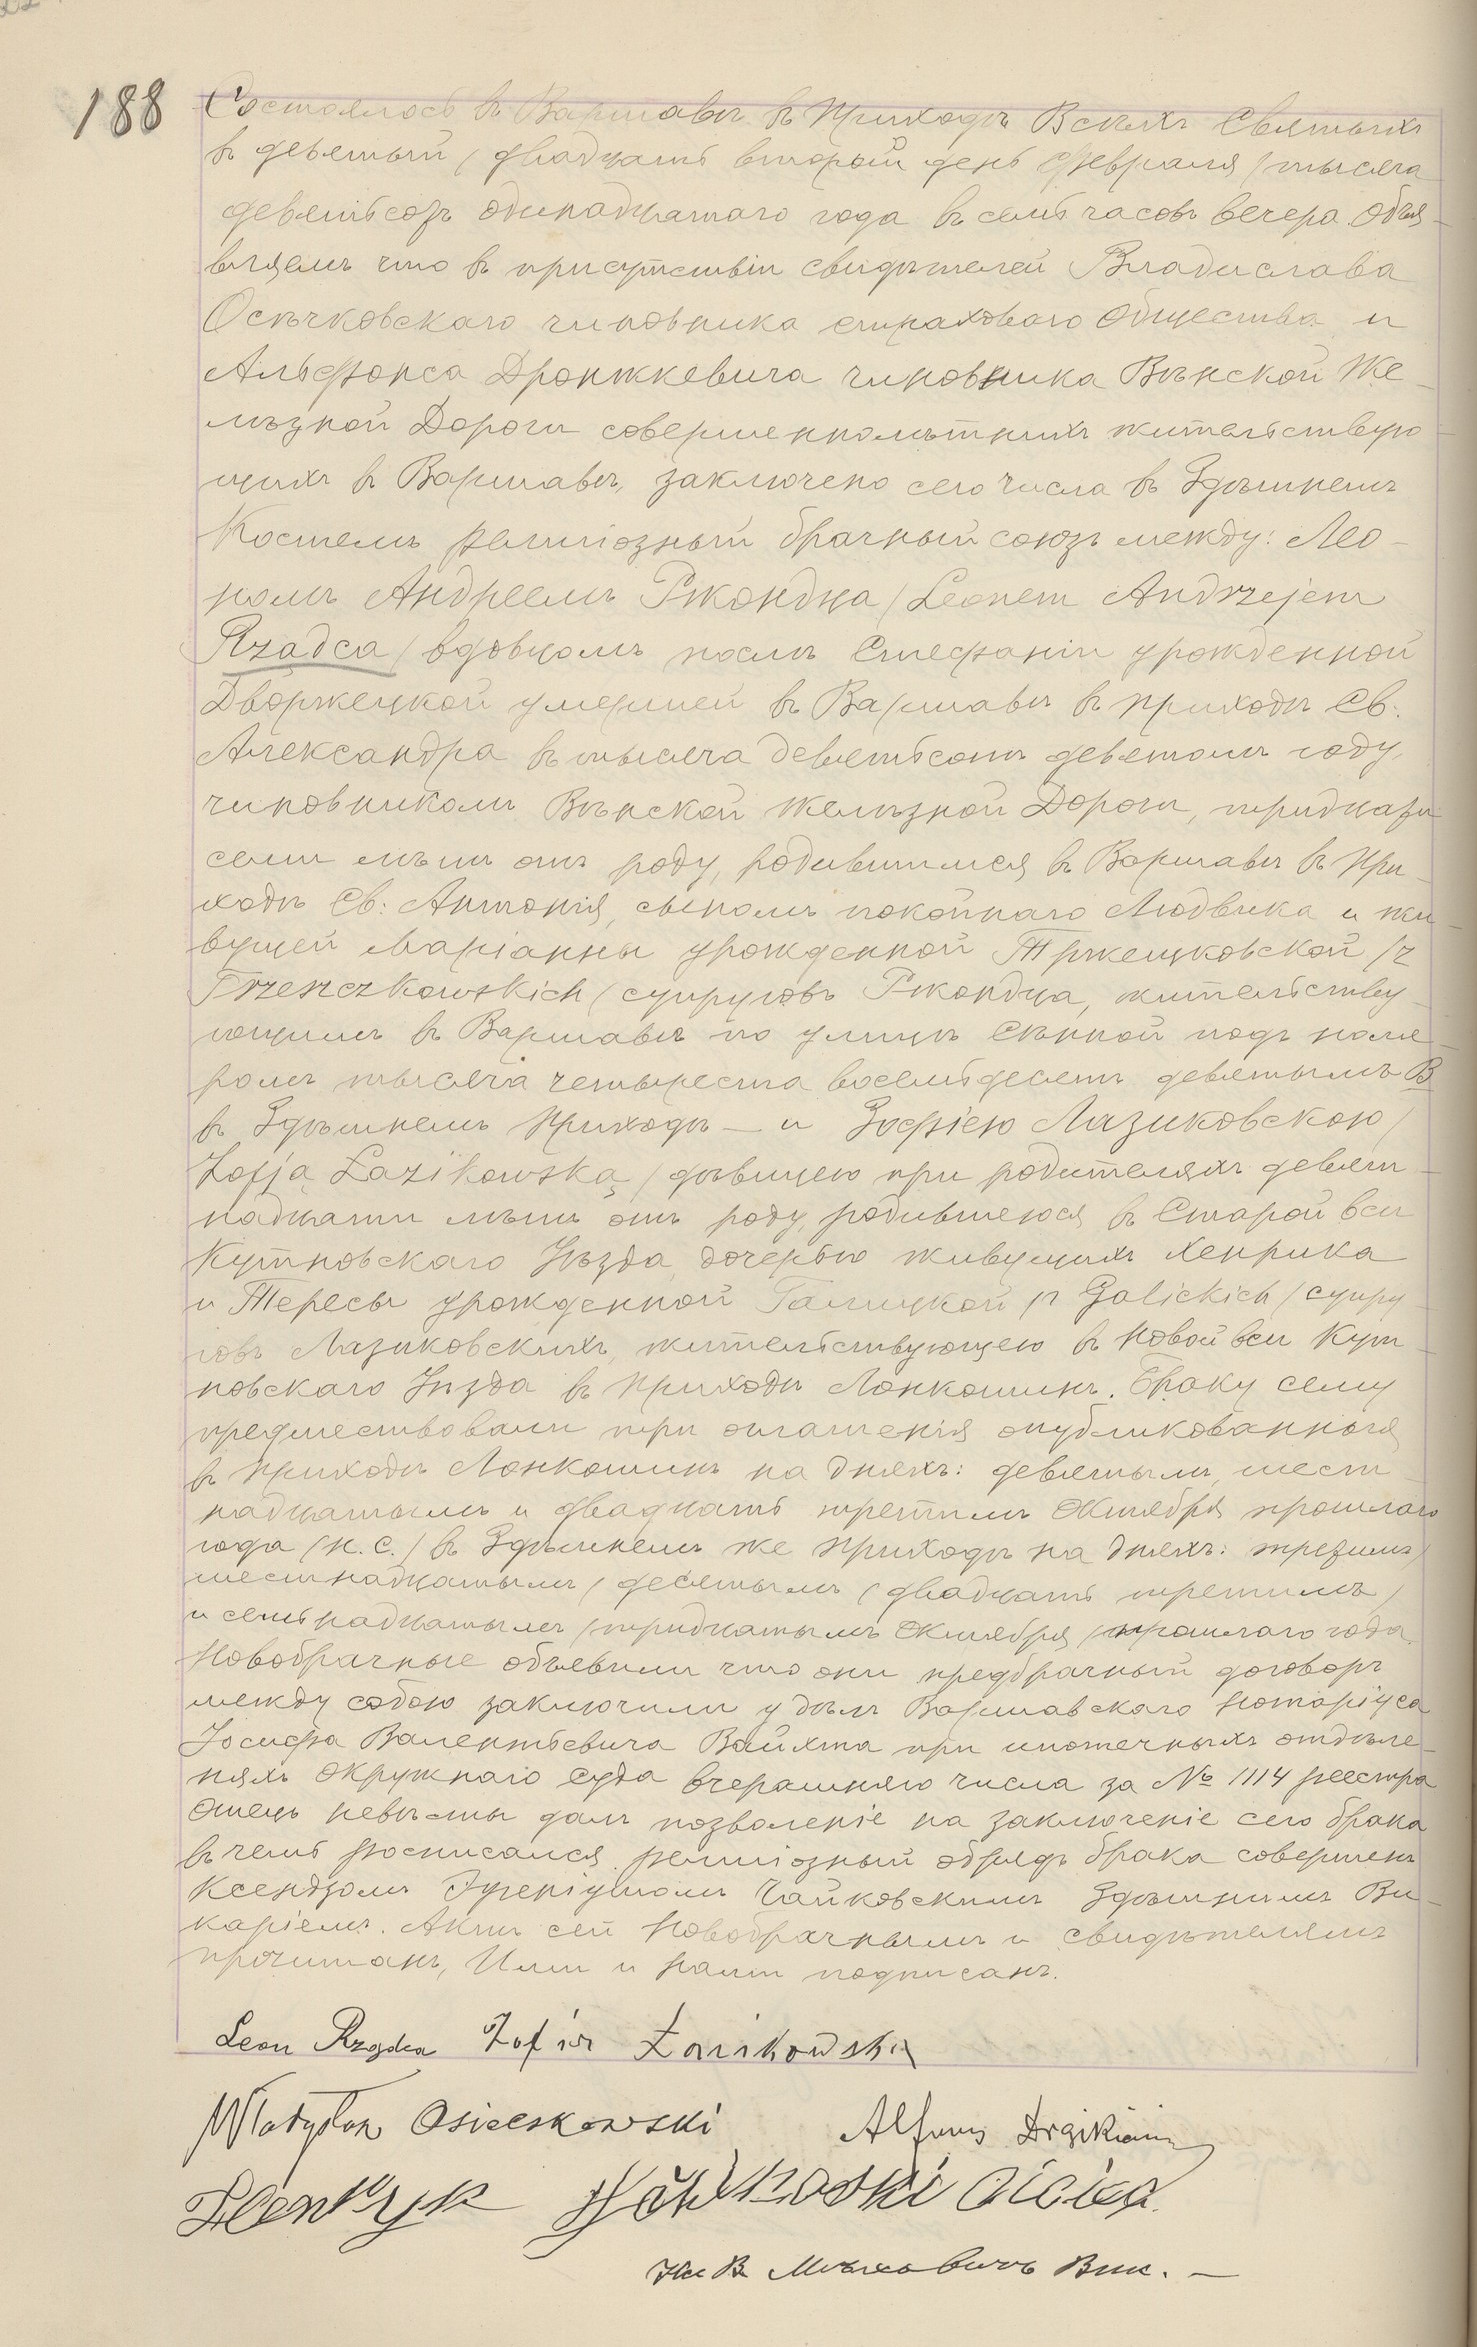 188
Состоялось въ Варшавѣ въ Приходѣ Всѣхъ Святыхъ
въ девятый / двадцать второй день Февраля / тысяча
девятьсотъ одинадцатаго года въ семь часовъ вечера. Объя-
вляемъ что въ присутствіи свидѣтелей Владислава
Осѣчковскаго чиновника страховаго Общества и
Альфонса Дронжкевича чиновника Вѣнской Же-
лѣзной Дороги совершеннолѣтнихъ жительствую-
щихъ въ Варшавѣ, заключено сего числа въ Здѣшнемъ
Костелѣ религіозный брачный союзъ между: Лео-
номъ Андреемъ Ржондца / Leonem Andrzejem
Rządca / вдовцомъ послѣ Стефаніи урожденной
Дворжецкой умершей въ Варшавѣ въ приходѣ Св:
Александра въ тысяча девятьсотъ девятомъ году,
чиновникомъ Вѣнской Желѣзной Дороги, тридцати
семи лѣтъ отъ роду, родившимся въ Варшавѣ въ При-
ходѣ Св: Антонія, сыномъ покойнаго Людвика и жи-
вущей Маріанны урожденной Тржещковской / z
Trzeszczkowskich / супруговъ Ржондца, жительству-
ющимъ въ Варшавѣ по улицѣ Сѣнной подъ номе-
ромъ тысяча четыреста восемьдесятъ девятымъ В
въ Здѣшнемъ Приходѣ — и Зофіею Лазиковскою /
Zofją Łazikowską / дѣвицею при родителяхъ девят-
надцати лѣтъ отъ роду, родившеюся въ Старой вси
Кутновскаго Уѣзда, дочерью живущихъ Хенрика
и Тересы урожденной Галицкой / z Galickich / супру-
говъ Лазиковскихъ, жительствующею въ Новой вси Кут-
новскаго Уѣзда въ приходѣ Лонкошинъ. Браку сему
предшествовали три оглашенія опубликованныя
въ приходѣ Лонкошинъ на дняхъ: девятымъ, шест-
надцатымъ и двадцать третьимъ Октября прошлаго
года / н. с. / въ Здѣшнемъ же приходѣ на дняхъ: третьимъ /
шестнадцатымъ / десятымъ / двадцать третимъ /
и семнадцатымъ / тридцатымъ Октября / прошлаго года.
Новобрачные объявили что они предбрачный договоръ
между собою заключили у дѣлъ Варшавскаго Нотаріуса
Іосифа Валентьевича Вайхта при ипотечныхъ отдѣле-
ніяхъ Окружнаго Суда вчерашняго числа за № 1114 реестра
Отецъ невѣсты далъ позволеніе на заключеніе сего брака
въ чемъ росписался. Религіозный обрядъ брака совершенъ
Ксендзомъ Чайковскимъ Здѣшнимъ Ви-
каріемъ. Актъ сей Новобрачнымъ и свидѣтелямъ
прочитанъ, Ими и Нами подписанъ.
Leon Rządca Zofia Łazikowska
Władysław Osieczkowski Alfons Drążkiewicz
Henryk Łazikowski Ojciec
Кс В Вик. —